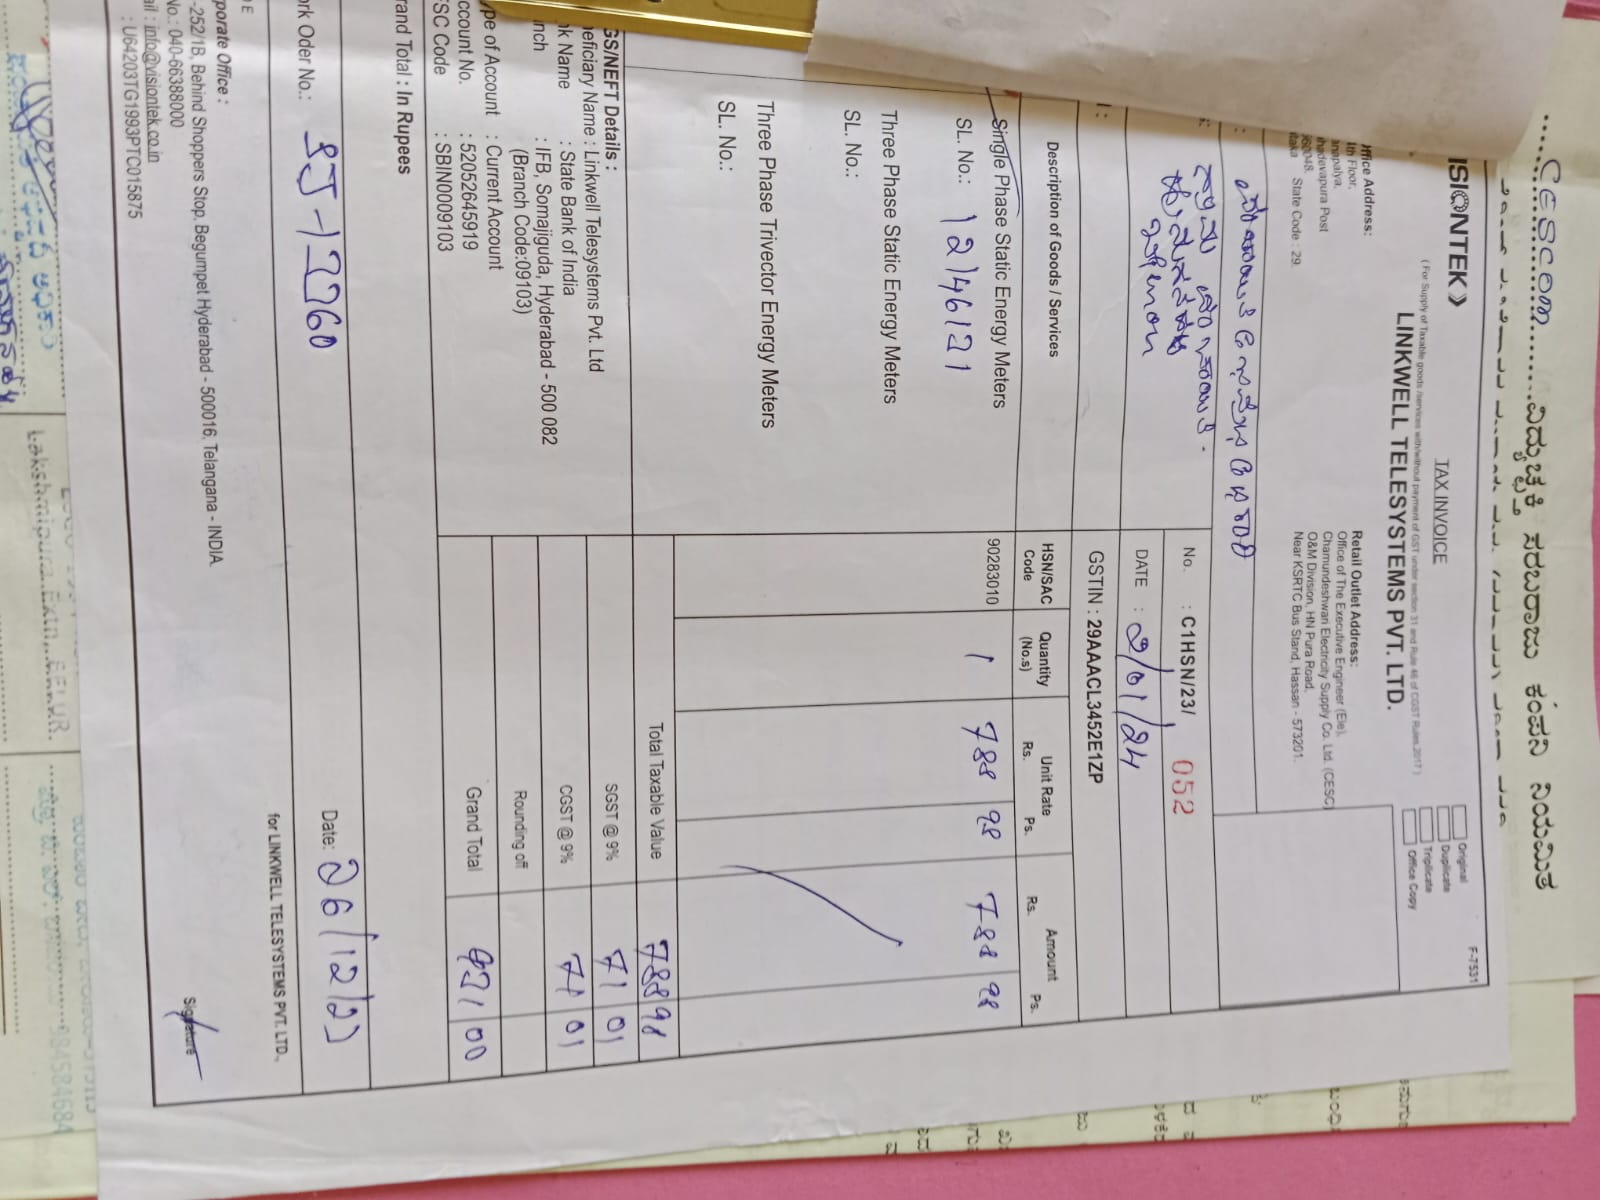 CESCOM ವಿದ್ಯುಚ್ಛಕ್ತಿ ಸರಬರಾಜು ಕಂಪನಿ ನಿಯಮಿತ
F-7531
TAX INVOICE
Original
Duplicate
Triplicate
Office Copy
ISIONTEK
( For Supply of Taxable goods /services with/without payment of GST under section 31 and Rule 46 of CGST Rules 2017 )
LINKWELL TELESYSTEMS PVT. LTD.
ffice Address:
4th Floor,
anapalya,
hadevapura Post
560048.
taka State Code : 29.
Retail Outlet Address:
Office of The Executive Engineer (Ele),
Chamundeshwari Electricity Supply Co. Ltd. (CESC)
O&M Division, HN Pura Road,
Near KSRTC Bus Stand, Hassan - 573201.
No. : C1HSN/23/ 052
DATE : 2/01/24
GSTIN : 29AAACL3452E1ZP
Description of Goods / Services
HSN/SAC Code
Quantity (No.s)
Unit Rate Rs. Ps.
Amount Rs. Ps.
Single Phase Static Energy Meters 90283010 1 788 98 788 98
SL. No.: 12146121
Three Phase Static Energy Meters
SL. No.:
Three Phase Trivector Energy Meters
SL. No.:
Total Taxable Value 788 98
GS/NEFT Details :
SGST @ 9% 71 01
eficiary Name : Linkwell Telesystems Pvt. Ltd
k Name : State Bank of India
CGST @ 9% 71 01
nch : IFB, Somajiguda, Hyderabad - 500 082
(Branch Code:09103)
Rounding off
pe of Account : Current Account
ccount No. : 52052645919
Grand Total 931 00
SC Code : SBIN0009103
rand Total : In Rupees
rk Oder No.:
Date: 26/12/23
for LINKWELL TELESYSTEMS PVT. LTD.,
porate Office :
-252/1B, Behind Shoppers Stop, Begumpet Hyderabad - 500016, Telangana - INDIA
No.: 040-66388000
ail : info@visiontek.co.in
: U64203TG1993PTC015875
Signature
Lakshmipura Extn, BELUR.